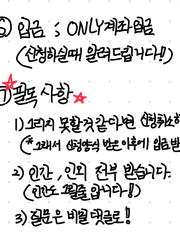 ⑥ 입금 : ONLY계좌입금
(신청하실때 알려드립니다!!)
⑦필독사항
1) 그리지 못할것같다면 신청취소
(*그래서 신청양식 받은 이후에 입금받
2) 인간, 인외 전부 받습니다.
(인간도 그릴줄 압니다!!)
3) 질문은 비밀댓글로!